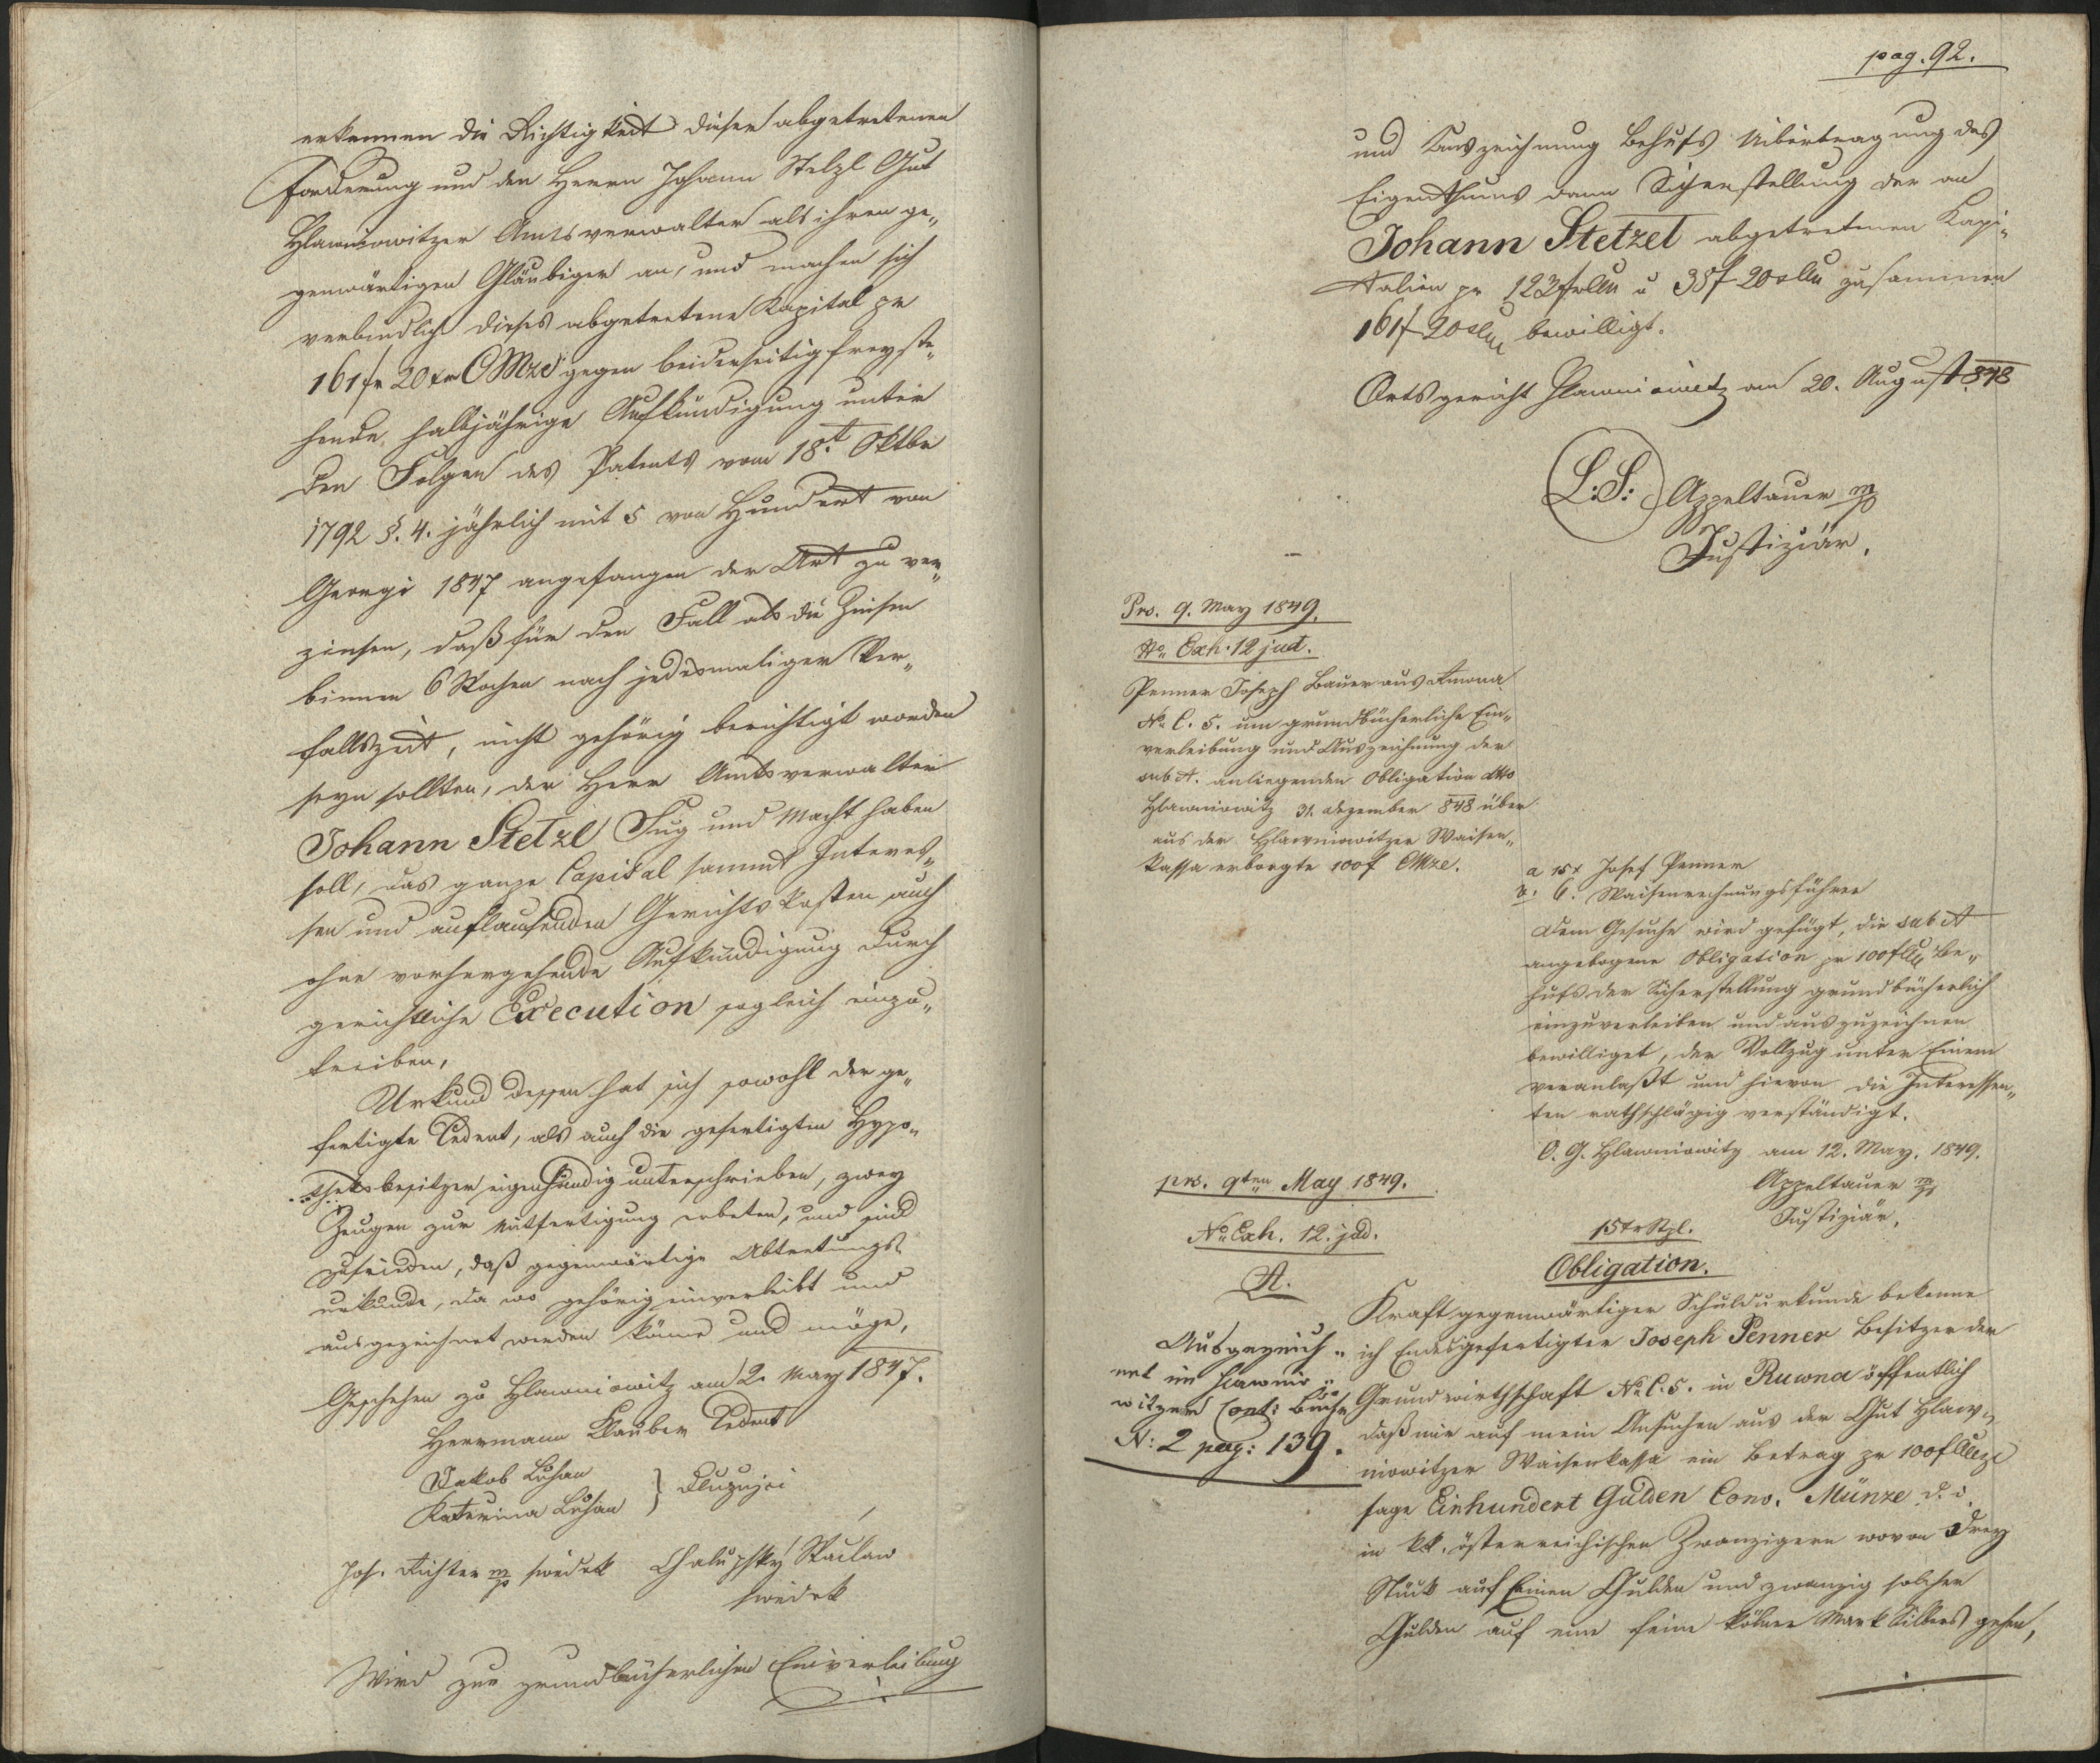 erkennen die Richtigkeit dieser abgetretenen
Forderung und den Herrn Johann Stelzl Gut
Hlawniowitzer Amtsverwalter als ihren ge„
genwärtigen Gläubiger an, und machen sich
verbindlich dieses abgetretene Kapital pr
161 fr 20 xr CMze gegen beiderseitig freyste„
hende halbjährige Aufkündigung unter
den Folgen des Patents vom 18t Oktbr
1792 §. 4. jährlich mit 5 von Hundert von
Georgi 1847 angefangen der Art zu ver„
zinsen, daß für den Fall als die Zinsen
binnen 6 Wochen nach jedesmaliger Ver„
fallszeit, nicht gehörig berichtigt worden
seyn sollten, der Herr Amtsverwalter
Johann Stetzl Fug und Macht haben
soll, das ganze Capital sammt Interes„
sen und auflaufenden Gerichtskosten auch
ohne vorhergehende Aufkündigung durch
gerichtliche Execution sogleich einzu„
treiben,
Urkund dessen hat sich sowohl der ge„
fertigte Cedent, als auch die gefertigten Hypo„
theksbesitzer eigenhändig unterschrieben, zwey
Zeugen zur Mitfertigung erbeten, und sind
zufrieden, daß gegenwärtige Abtretungs
urkunde, da wo gehörig einverleibt und
ausgezeichnet werden könne und möge,
Geschehen zu Hlawniowitz am 2. May 1847.
Herrmann Klauber Cedent
Jakob Luhan
Katerina Luhan } Dluznjci
Jos. Richter mp swedek Chalupsky Waclaw
swedek
Wird zur grundbücherlichen Einverleibung
pag. 92.
und Auszeichnung behufs Uibertragung des
Eigenthums dann Sicherstellung der an
Johann Stetzel abgetretenen Kapi„
talien pr 123 f u 38 f 20 zusammen
161 f 20 bewilligt.
Ortsgericht Hlawniowitz am 20. August 848
L: S: Appeltauer mp
Justiziär.
Prs. 9. May 1849.
No Exh. 12 jud.
Penner Joseph Bauer aus
No C. 5. um grundbücherliche Ein„
verleibung und Auszeichnung der
sub A. anliegenden Obligation dtto
Hlawniowitz 31. Dezember 848 über
aus der Hlawniowitzer Waisen„
kassa erborgte 100 f CMze.
a 15x Josef Penner
b. 6. Waisenrechnungsführer
Dem Gesuche wird gefügt, die sub A
angebogene Obligation pr 100 f be„
hufs der Sicherstellung grundbücherlich
einzuverleiben und auszuzeichnen
bewilliget, der Vollzug unter Einem
veranlaßt und hievon die Interessen„
ten rathschlägig verständigt.
O. G. Hlawniowitz am 12. May. 1849.
Appeltauer mp
Justiziär.
prs. 9ten May 1849.
No Exh. 12. jud.
A.
15 xr Stpl.
Obligation.
Ausgezeich„
net im Hlawnio„
witzer Cont: Buche
N: 2 pag: 139.
Kraft gegenwärtiger Schuldurkunde bekenne
ich Endesgefertigter Joseph Penner Besitzer der
Grundwirthschaft No C. 5. in Ruwna öffentlich
daß mir auf mein Ansuchen aus der Gut Hlaw„
niowitzer Waisenkassa ein Betrag pr 100 f CMze
sage Einhundert Gulden Conv. Münze d. i.
in kk. österreichischen Zwanzigern wovon Drey
Stück auf Einen Gulden und zwanzig solcher
Gulden auf eine feine kölner Mark Silbers gehen,